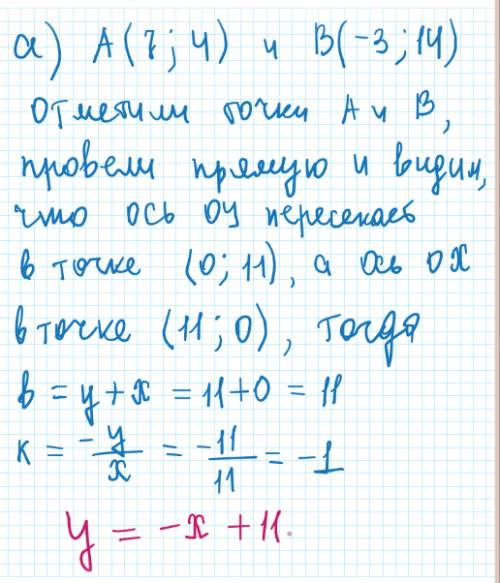 а) А(7; 4) и В(-3; 14)
отметили точки А и В,
провели прямую и видим,
что ось ОУ пересекает
в точке (0; 11), а ось ОХ
в точке (11; 0), тогда
в = у + х = 11+0 = 11
к = -у/х = -11/11 = -1
у = -х + 11.